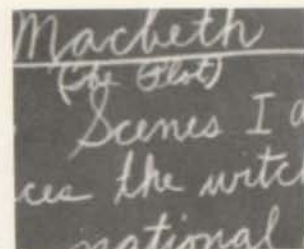 Macbeth
(The Plot)
Scenes I a
ces the witch
national